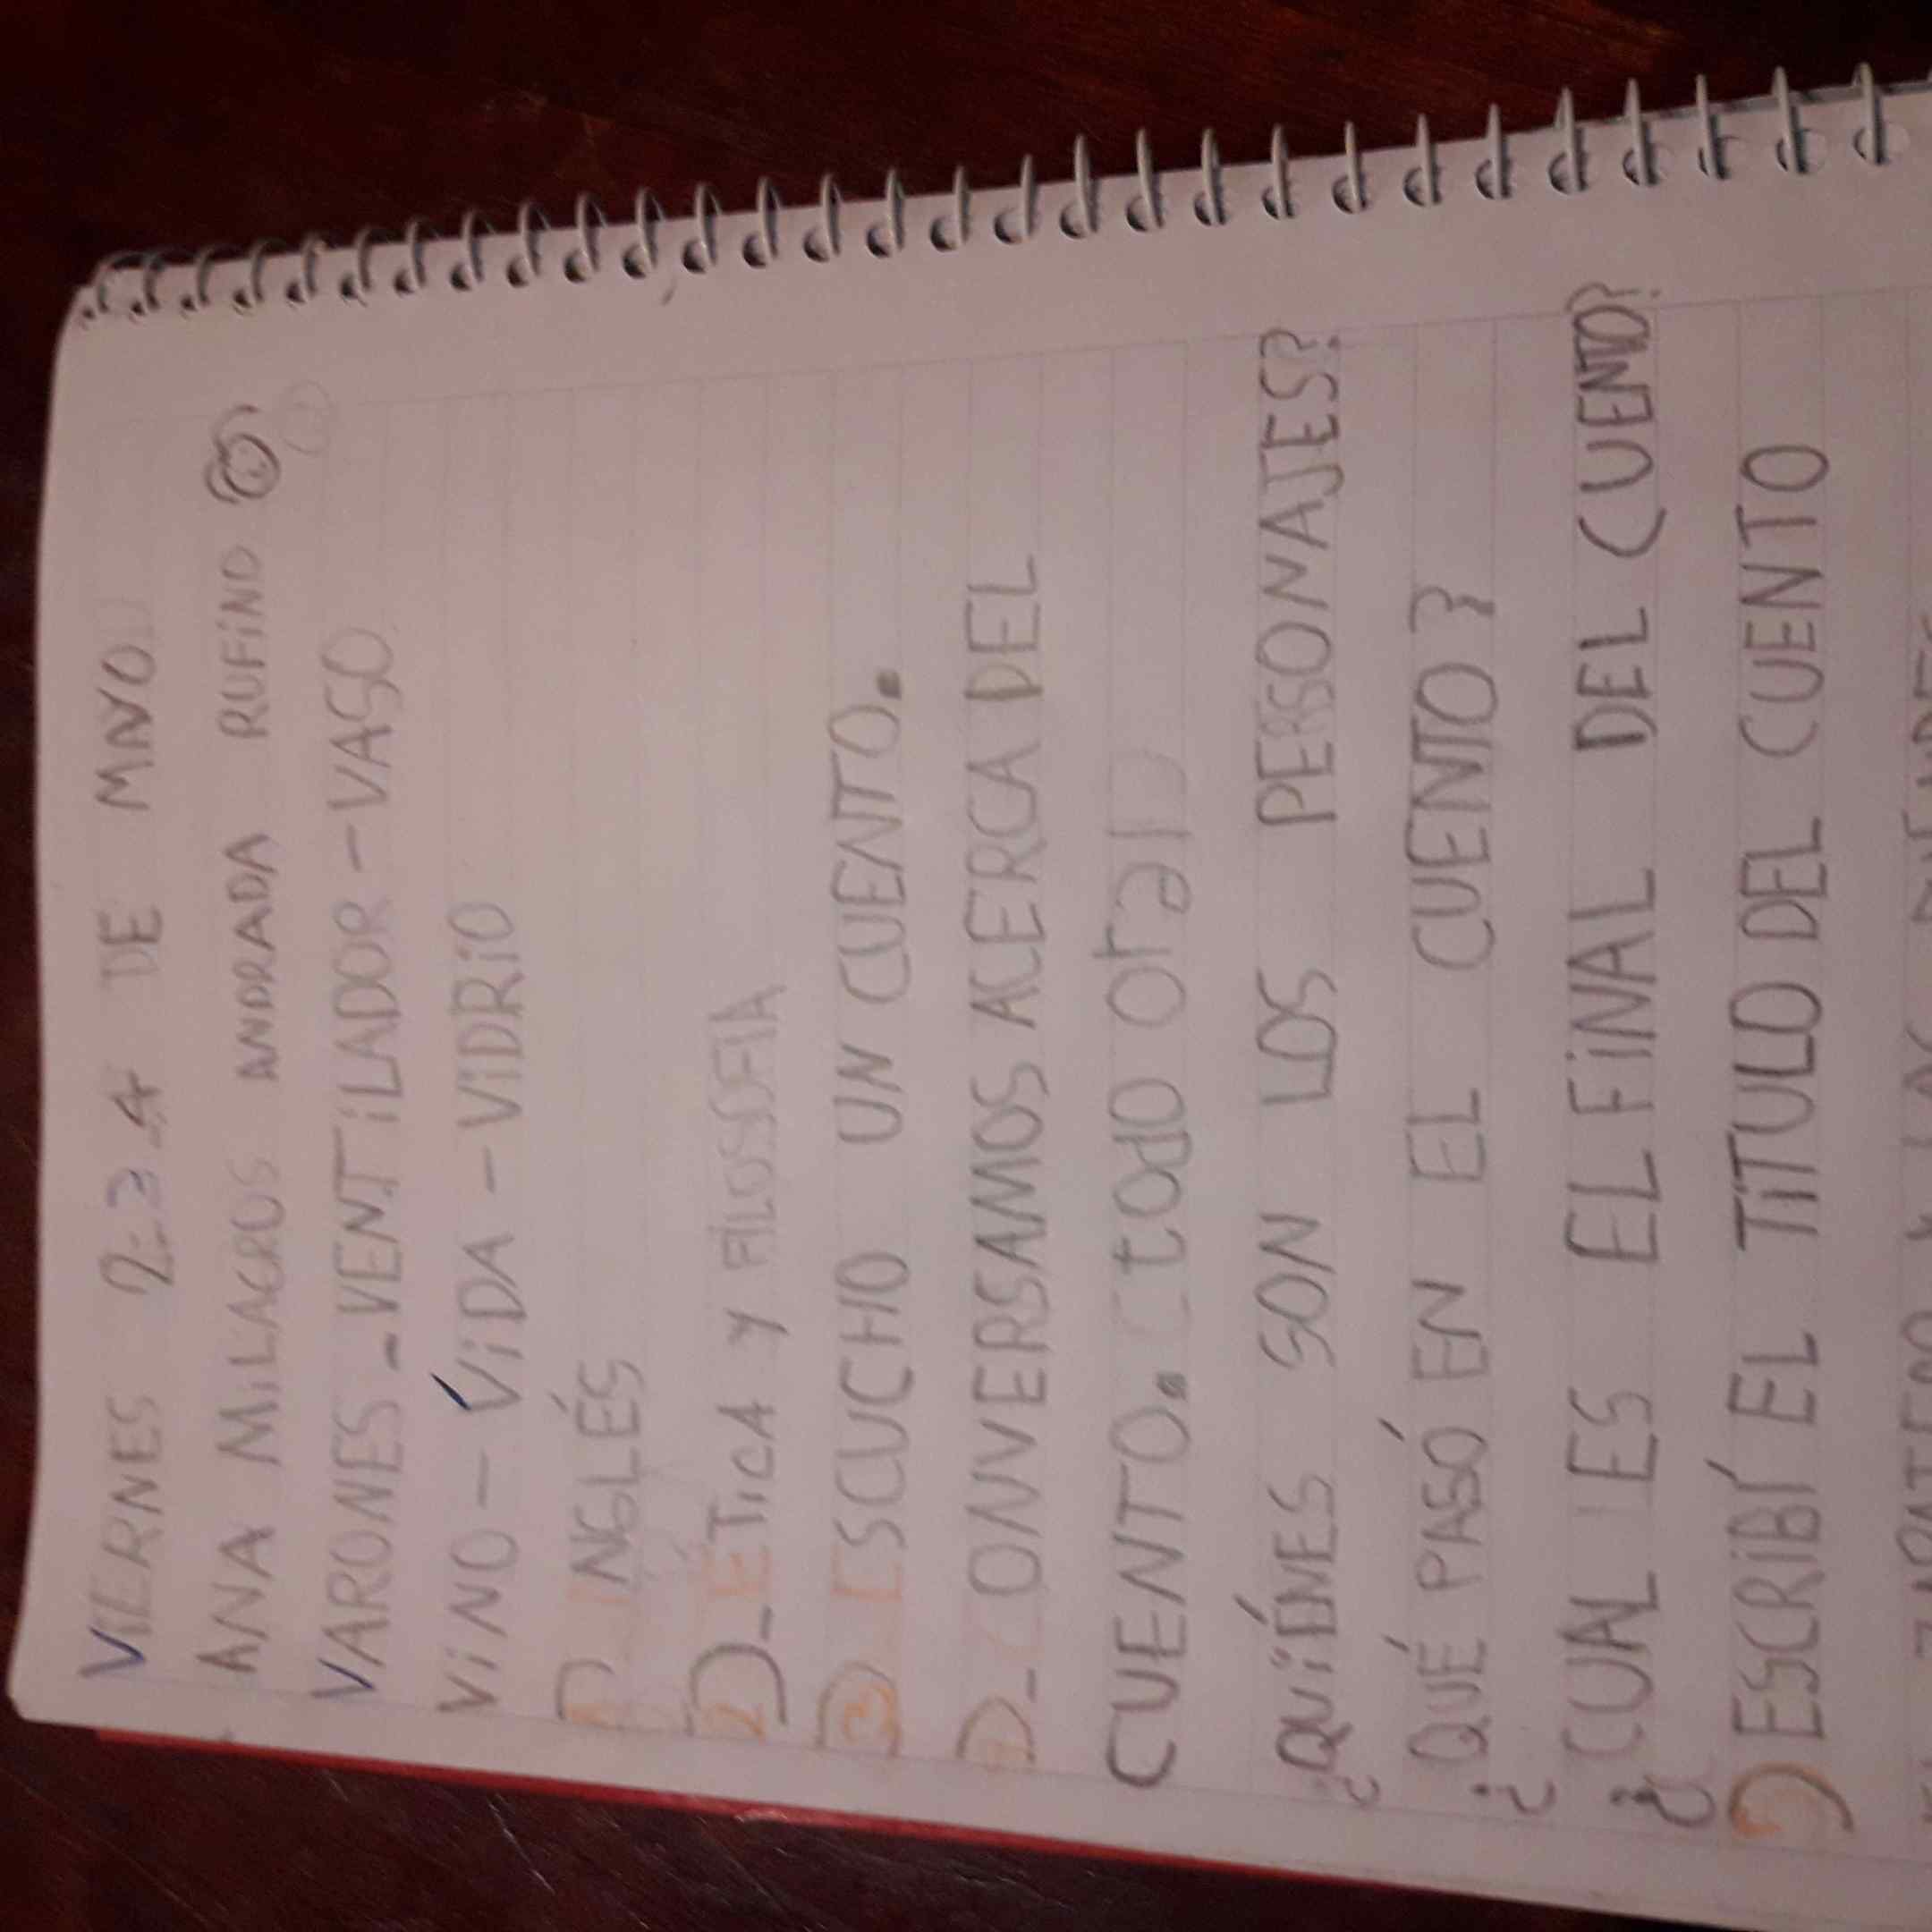 VIERNES 2_3_4 DE MAYO
ANA MiLAGROS ANDRADA RUFiNO
VARONES_VENTiLADOR-VASO
ViNO-ViDA-ViDRiO
1)_INGLÉS
2)_ÉTiCA Y FiLOSOFIA
3)_ESCUCHO UN CUENTO.
CONVERSAMOS ACERCA DEL
CUENTO. (todo oral)
¿QUiÉNES SON LOS PERSONAJES?
¿QUÉ PASÓ EN EL CUENTO?
¿CUAL ES EL FiNAL DEL CUENTO?
ESCRiBÍ EL TiTULO DEL CUENTO